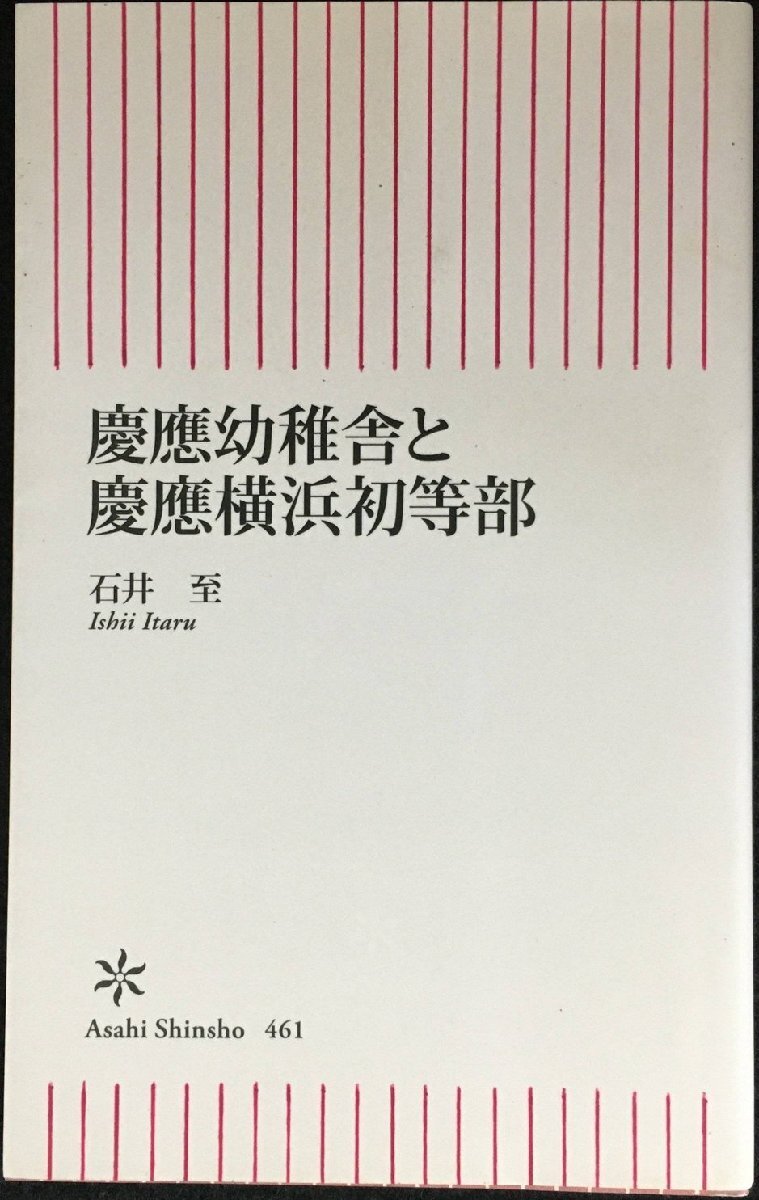 慶應幼稚舎と
慶應横浜初等部
石井 至
Ishii Itaru
Asahi Shinsho 461